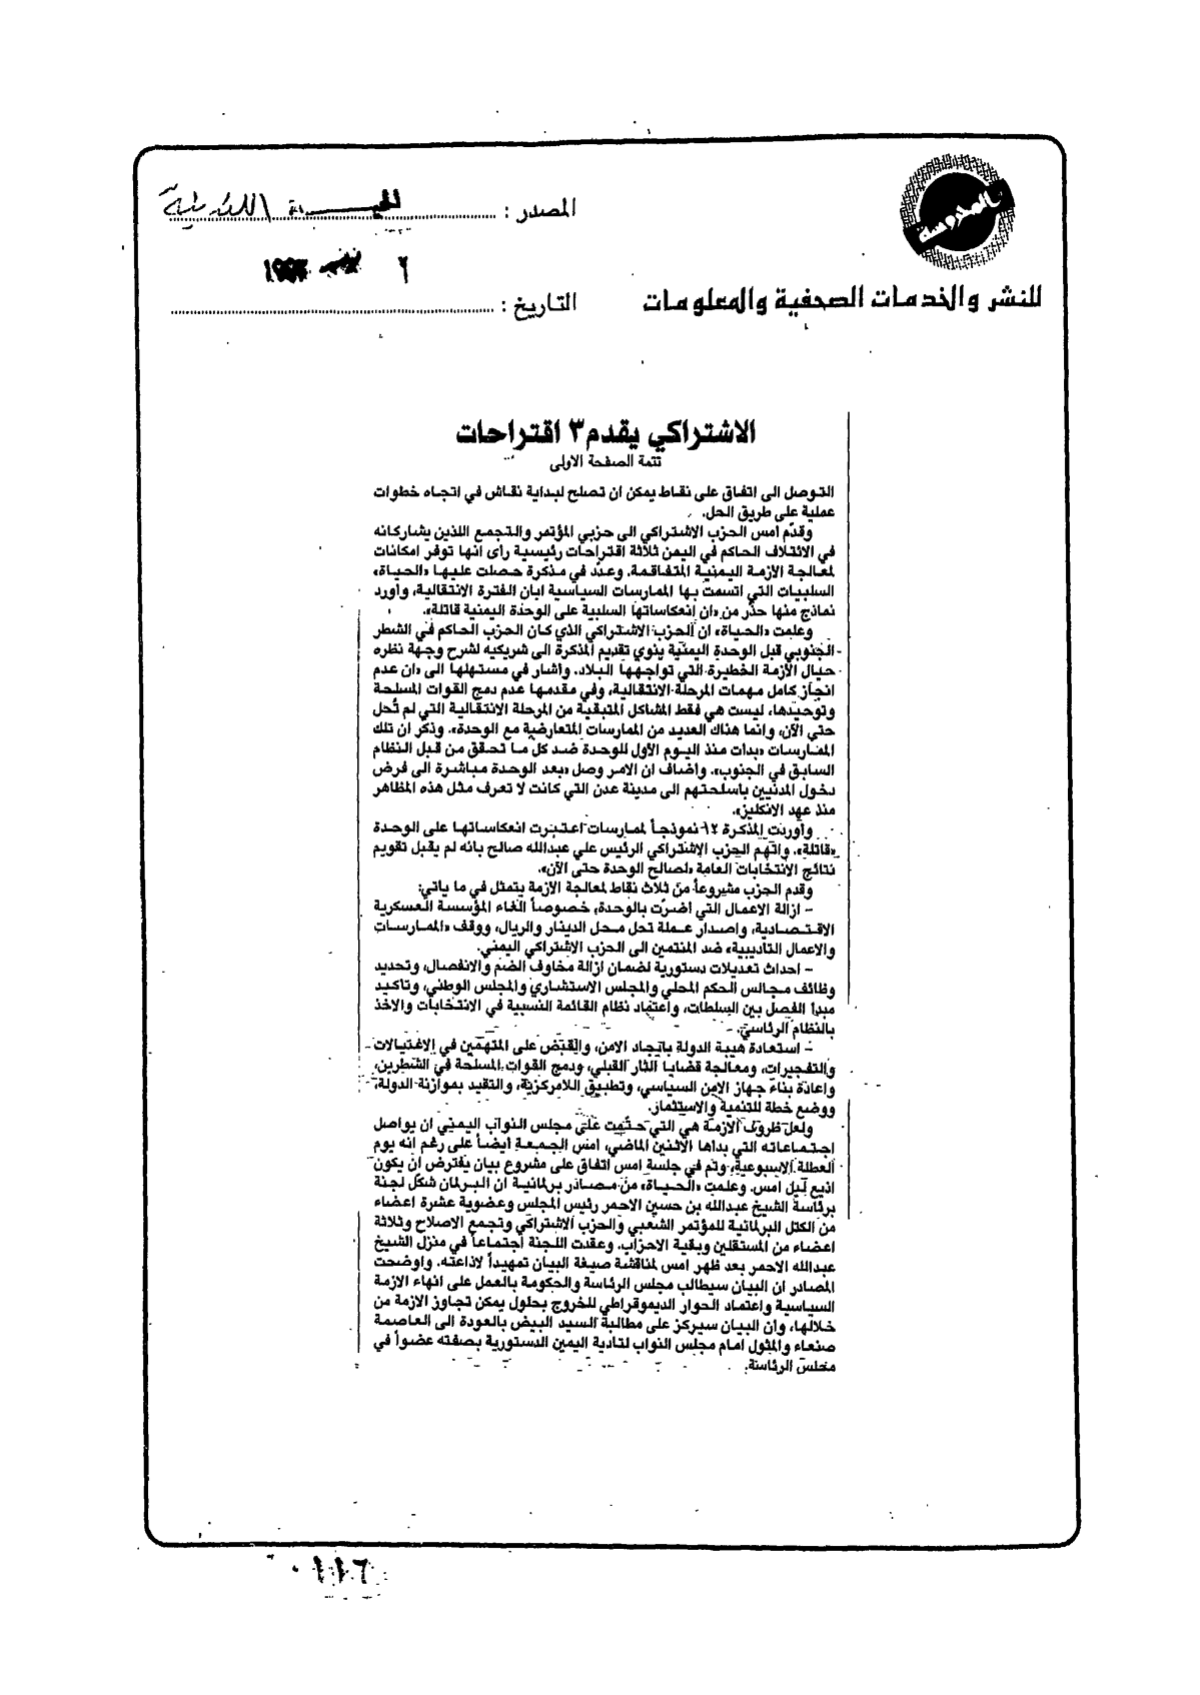 المحروسة
للنشر والخدمات الصحفية والمعلومات
المصدر : الحياة اللندنية
التاريخ :
٦ نوفمبر ١٩٩٣
الاشتراكي يقدم ٣ اقتراحات
تتمة الصفحة الاولى
التوصل الى اتفاق على نقاط يمكن ان تصلح لبداية نقاش في اتجاه خطوات
عملية على طريق الحل.
وقدّم امس الحزب الاشتراكي الى حزبي المؤتمر والتجمع اللذين يشاركانه
في الائتلاف الحاكم في اليمن ثلاثة اقتراحات رئيسية رأى انها توفر امكانات
لمعالجة الازمة اليمنية المتفاقمة. وعدّد في مذكرة حصلت عليها «الحياة»
السلبيات التي اتسمت بها الممارسات السياسية ابان الفترة الانتقالية، وأورد
نماذج منها حذّر من «ان إنعكاساتها السلبية على الوحدة اليمنية قاتلة».
وعلمت «الحياة» ان الحزب الاشتراكي الذي كان الحزب الحاكم في الشطر
الجنوبي قبل الوحدة اليمنية ينوي تقديم المذكرة الى شريكيه لشرح وجهة نظره
حيال الأزمة الخطيرة التي تواجهها البلاد. واشار في مستهلها الى «ان عدم
انجاز كامل مهمات المرحلة الانتقالية، وفي مقدمها عدم دمج القوات المسلحة
وتوحيدها، ليست هي فقط المشاكل المتبقية من المرحلة الانتقالية التي لم تُحل
حتى الآن، وانما هناك العديد من الممارسات المتعارضة مع الوحدة». وذكر ان تلك
الممارسات «بدأت منذ اليوم الأول للوحدة ضد كل ما تحقق من قبل النظام
السابق في الجنوب». واضاف ان الامر وصل «بعد الوحدة مباشرة الى فرض
دخول المدنيين باسلحتهم الى مدينة عدن التي كانت لا تعرف مثل هذه المظاهر
منذ عهد الانكليز».
وأوردت المذكرة ١٢ نموذجاً لممارسات اعتبرت انعكاساتها على الوحدة
«قاتلة». واتهم الحزب الاشتراكي الرئيس علي عبدالله صالح بانه لم يقبل تقويم
نتائج الانتخابات العامة «لصالح الوحدة حتى الآن».
وقدم الحزب مشروعاً من ثلاث نقاط لمعالجة الازمة يتمثل في ما ياتي:
- ازالة الاعمال التي اضرّت بالوحدة، خصوصاً الغاء المؤسسة العسكرية
الاقتصادية، واصدار عملة تحل محل الدينار والريال، ووقف «الممارسات
والاعمال التاديبية» ضد المنتمين الى الحزب الاشتراكي اليمني.
- احداث تعديلات دستورية لضمان ازالة مخاوف الضم والانفصال، وتحديد
وظائف مجالس الحكم المحلي والمجلس الاستشاري والمجلس الوطني، وتاكيد
مبدأ الفصل بين السلطات، واعتماد نظام القائمة النسبية في الانتخابات والاخذ
بالنظام الرئاسي.
- استعادة هيبة الدولة بايجاد الامن، والقبض على المتهمين في الاغتيالات
والتفجيرات، ومعالجة قضايا الثار القبلي، ودمج القوات المسلحة في الشطرين،
واعادة بناء جهاز الامن السياسي، وتطبيق اللامركزية، والتقيد بموازنة الدولة،
ووضع خطة للتنمية والاستثمار.
ولعل ظروف الازمة هي التي حتّمت على مجلس النواب اليمني ان يواصل
اجتماعاته التي بداها الاثنين الماضي، امس الجمعة ايضاً على رغم انه يوم
العطلة الاسبوعية، وتم في جلسة امس اتفاق على مشروع بيان يفترض ان يكون
اذيع ليل امس. وعلمت «الحياة» من مصادر برلمانية ان البرلمان شكّل لجنة
برئاسة الشيخ عبدالله بن حسين الاحمر رئيس المجلس وعضوية عشرة اعضاء
من الكتل البرلمانية للمؤتمر الشعبي والحزب الاشتراكي وتجمع الاصلاح وثلاثة
اعضاء من المستقلين وبقية الاحزاب. وعقدت اللجنة اجتماعاً في منزل الشيخ
عبدالله الاحمر بعد ظهر امس لمناقشة صيغة البيان تمهيداً لاذاعته. واوضحت
المصادر ان البيان سيطالب مجلس الرئاسة والحكومة بالعمل على انهاء الازمة
السياسية واعتماد الحوار الديموقراطي للخروج بحلول يمكن تجاوز الازمة من
خلالها، وان البيان سيركز على مطالبة السيد البيض بالعودة الى العاصمة
صنعاء والمثول امام مجلس النواب لتادية اليمين الدستورية بصفته عضواً في
مجلس الرئاسة.
٠١١٦